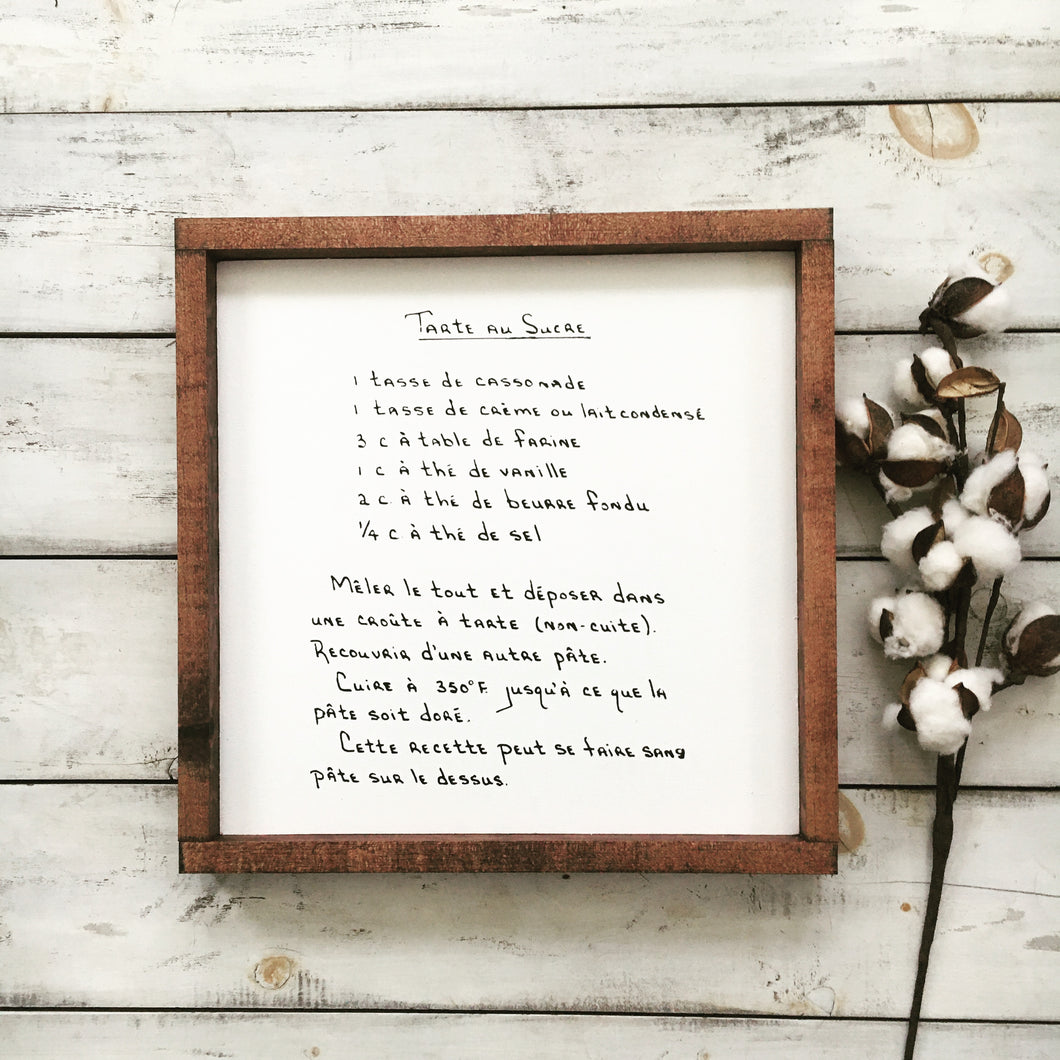 Tarte au Sucre
1 tasse de cassonade
1 tasse de crème ou lait condensé
3 c à table de farine
1 c à thé de vanille
2 c. à thé de beurre fondu
1/4 c. à thé de sel
Mêler le tout et déposer dans
une croûte à tarte (non-cuite).
Recouvrir d'une autre pâte.
Cuire à 350°F. jusqu'à ce que la
pâte soit doré.
Cette recette peut se faire sans
pâte sur le dessus.